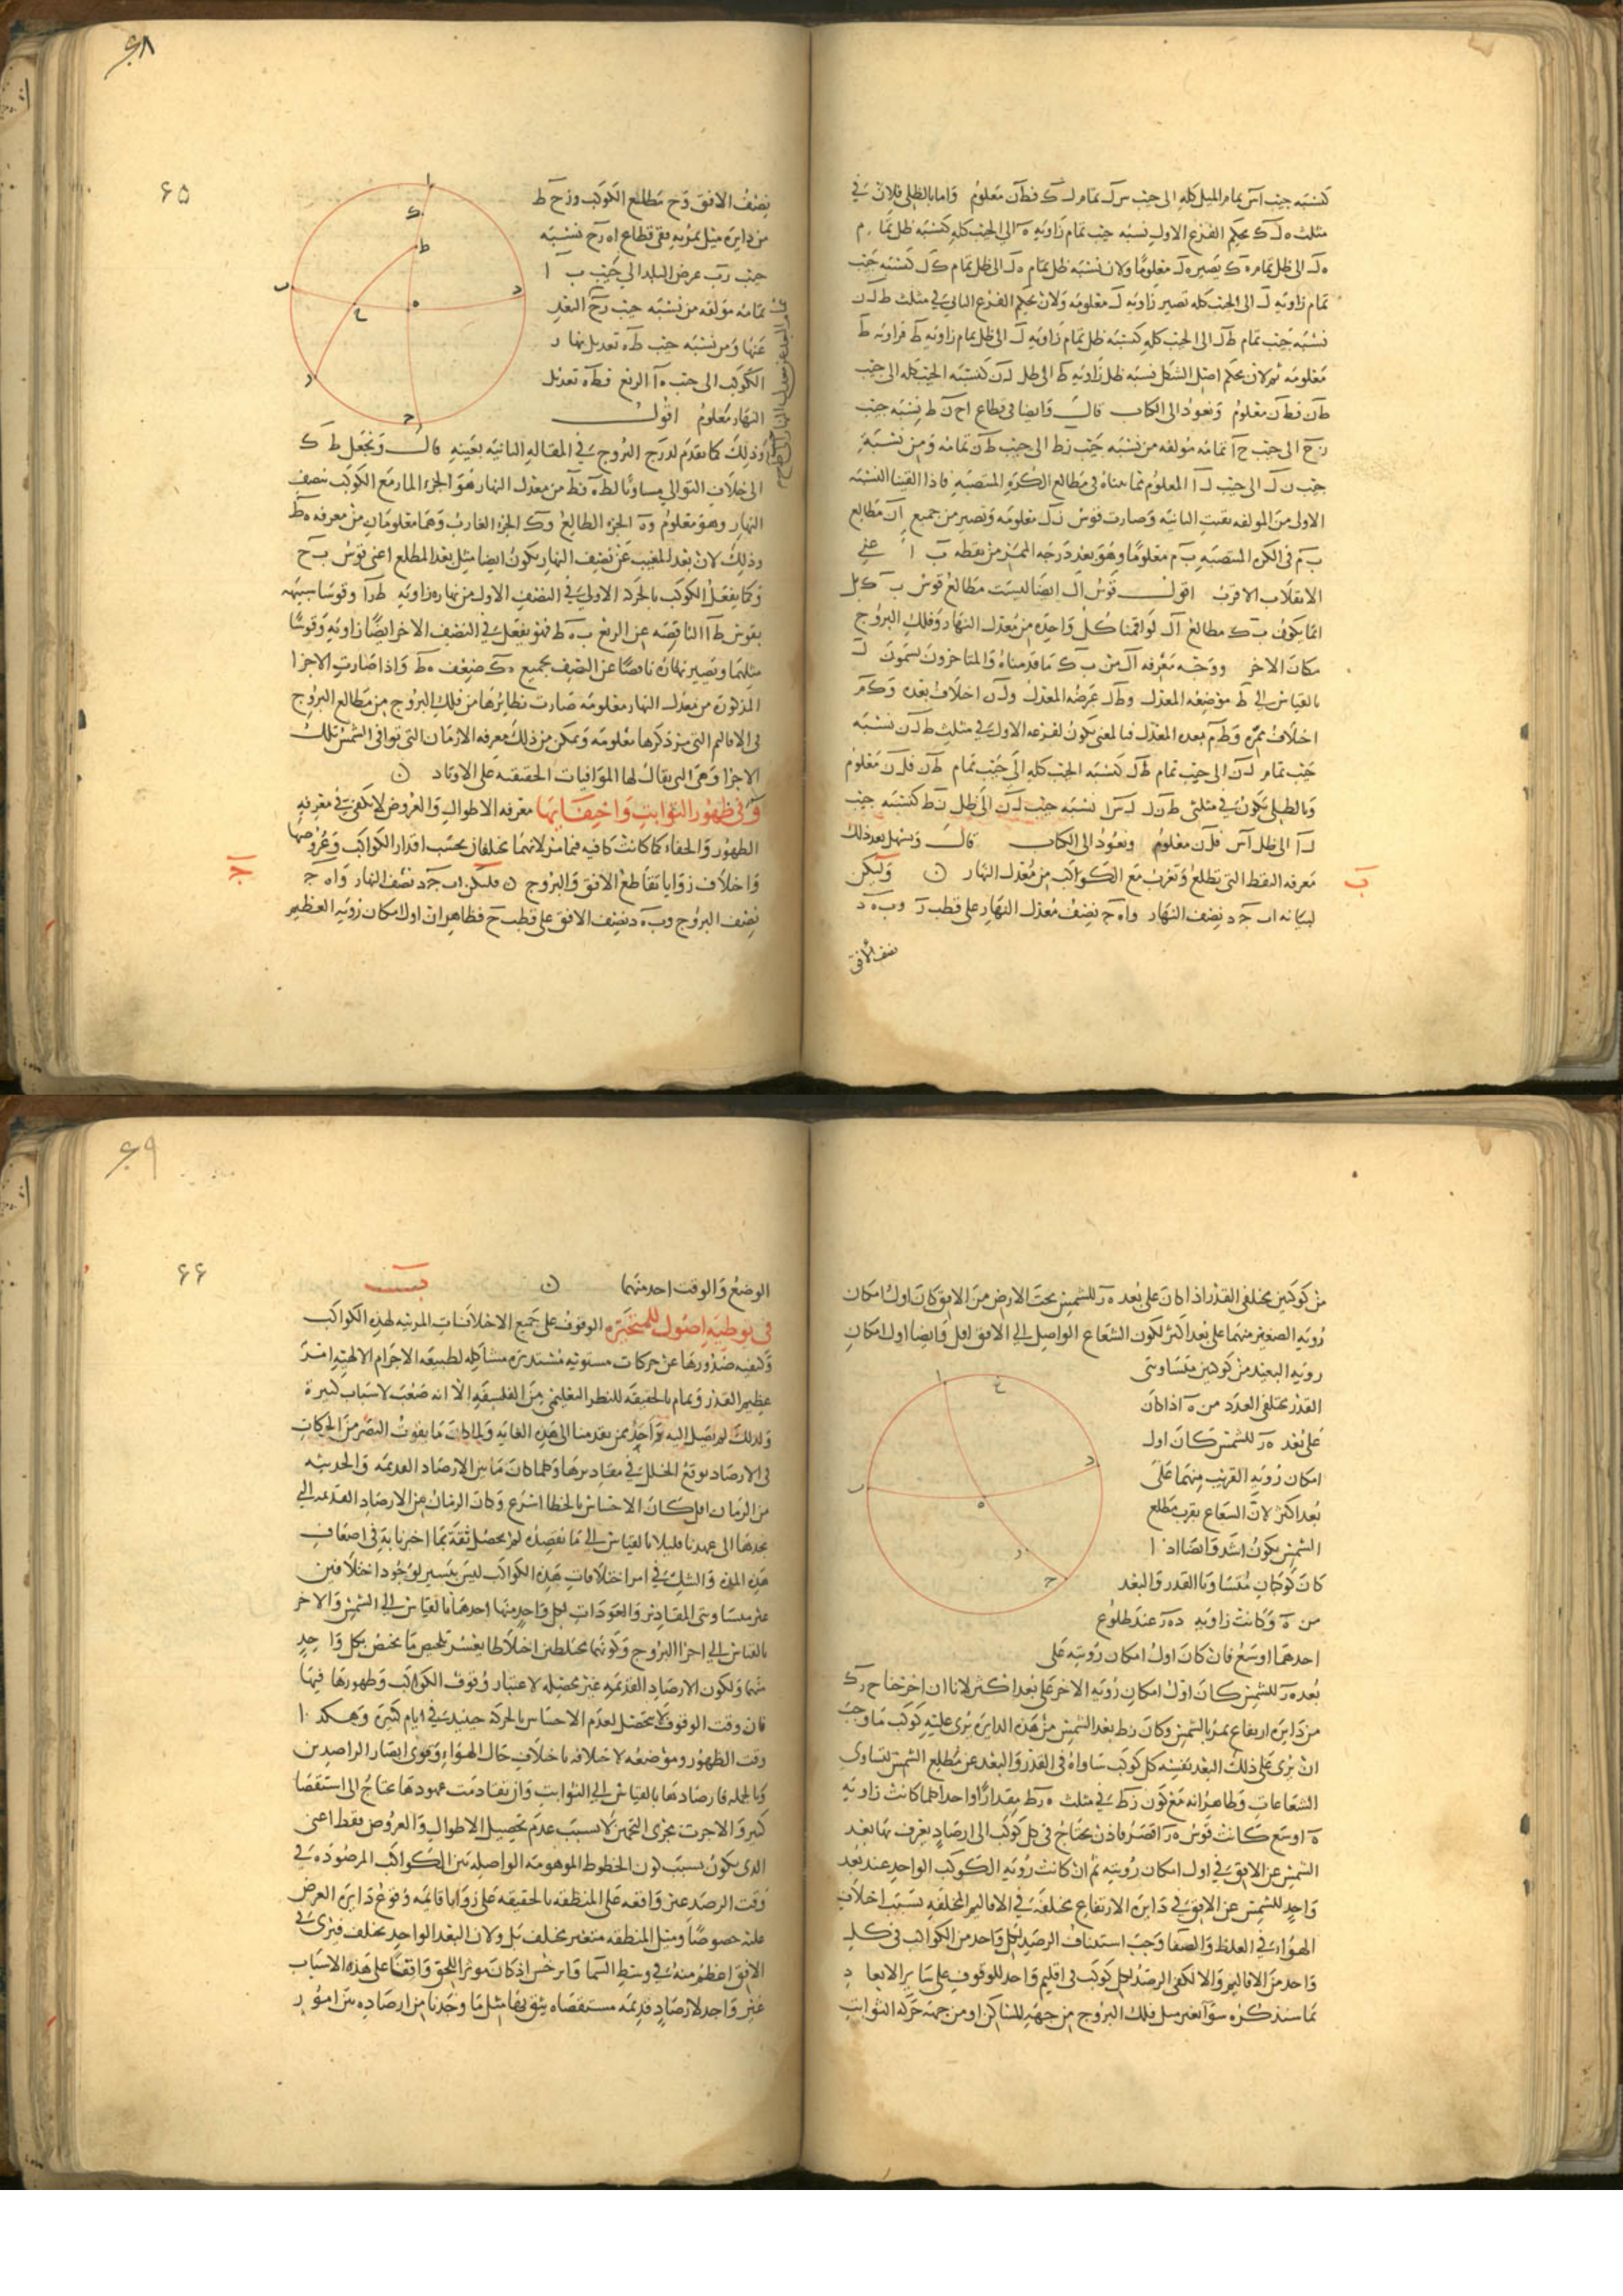 كنسبه جيب اس تمام الميل كله الى جيب س ك تمام ل ك فط ن معلوم واما بالظل فلان في
مثلث ه ل ك بحكم الفرع الاول نسبه جيب تمام زاويه ه الى الجيب كله كنسبه ظل تمام
ه ل الى ظل تمام ه ك يصير ه ل معلوما ولان نسبه ظل تمام ه ل الى ظل تمام ك ل كنسبه جيب
تمام زاويه ل الى الجيب كله تصير زاويه ل معلومه ولان بحكم الفرع الثاني في مثلث ط ل ن
نسبه جيب تمام ط ل الى الجيب كله كنسبه ظل تمام زاويه ل الى ظل تمام زاويه ط فزاويه ط
معلومه ثم لان بحكم اصل الشكل نسبه ظل زاويه ط الى ظل ل ن كنسبه الجيب كله الى جيب
ط ن فط ن معلوم ونعود الى الكتاب قال وايضا في قطاع ا ح ن ط نسبه جيب
ز ح الى جيب ح ا تمامه مولفه من نسبه جيب ز ط الى جيب ط ن تمامه ومن نسبه
جيب ن ل الى جيب ل ا المعلوم مما بيناه في مطالع الكره المنتصبه فاذا القينا النسبه
الاولى من المولفه بقيت الثانيه وصارت قوس ن ل معلومه وتصير من جميع ا ن مطالع
ب م في الكره المنتصبه ب م معلوما وهو بعد درجه الممر من نقطه ب ا عني
الانقلاب الاقرب اقول قوس ا ل ايضا ليست مطالع قوس ب ك بل
انما يكون ب ك مطالع ا ل لو اقمنا كل واحد من معدل النهار وفلك البروج
مكان الاخر ووجه معرفه ا ل من ب ك ما قدمناه والمتاخرون يسمون ل
بالقياس الى ط موضعه المعدل وط ل عرضه المعدل ول ن اختلاف بعده وك م
اختلاف ممره وط م بعده المعدل فبالمغنى يكون لفرعه الاول في مثلث ط ل ن نسبه
جيب تمام ل ن الى جيب تمام ط ل كنسبه الجيب كله الى جيب تمام ط ن فل ن معلوم
وبالظل يكون في مثلثى ط ن ل ل س ا نسبه جيب ل ن الى ظل ن ط كنسبه جيب
ل ا الى ظل ا س فل ن معلوم ونعود الى الكتاب قال ويسهل بعد ذلك
معرفه النقط التى تطلع وتغرب مع الكواكب من معدل النهار وليكن
ب
لبيانه ا ب ج د نصف النهار وا ه ج نصف معدل النهار على قطب ز وب ه د
نصف الافق
٦٨
٦٥
نصف الافق وح مطالع الكوكب وز ح ط
من دايره ميل تمر به ففي قطاع ا ه ز ح نسبه
جيب ز ب عرض البلد الى جيب ب ا
تمامه مولفه من نسبه جيب ز ح البعد
عنها ومن نسبه جيب ط ه تعديل نهار
الكوكب الى جيب ه ا الربع فط ه تعديل
النهار معلوم اقول
وذلك كما تقدم لدرج البروج في المقاله الثانيه بعينه قال ونجعل ط ك
الى خلاف التوالي مساويا لط ه فط من معدل النهار هو الجزء المار مع الكوكب بنصف
النهار وهو معلوم وه الجزء الطالع وك الجزء الغارب وهما معلومان من معرفه ه ط
وذلك لان بعد المغيب عن نصف النهار يكون ايضا مثل بعد المطلع اعني قوس ب ح
وكما يفعل الكوكب بالحركه الاولى في النصف الاول من نهاره زاويه ط ز ا وقوسا شبيهه
بقوس ط ا الناقصه عن الربع ب ه ط فهو يفعل في النصف الاخر ايضا زاويه وقوسا
مثلهما ويصير نهاره ناقصا عن النصف بجميع ه ك ضعف ه ط واذا صارت الاجزا
المذكوره من معدل النهار معلومه صارت نظائرها من فلك البروج من مطالع البروج
في الاقاليم التي مر ذكرها معلومه ويمكن من ذلك معرفه الازمان التي توافى الشمس تلك
الاجزا وهي التى يقال لها الموافيات الحقيقيه على الاوتاد
و في ظهور الثوابت واختفائها معرفه الاطوال والعروض لا تكفى في معرفه
الظهور والخفاء كما كانت كافيه فيما مر لانهما يختلفان بحسب اقدار الكواكب وعروضها
واختلاف زوايا تقاطع الافق والبروج فليكن ا ب ج د نصف النهار وا ه ج
نصف البروج وب ه د نصف الافق على قطب ح فظاهر ان اول امكان رويه العظيم
من كوكبين مختلفى القدر اذا كان على بعد ه ز للشمس تحت الارض من الافق كان اول امكان
رويه الصغير منهما على بعد اكثر لكون الشعاع الواصل الى الافق اقل وايضا اول امكان
رويه البعيد من كوكبين متساويى
القدر مختلفى العدد من ه اذا كان
على بعد ه ز للشمس كان اول
امكان رويه القريب منهما على
بعد اكثر لان الشعاع بقرب مطلع
الشمس يكون اشد وايضا اذا
كان كوكبان متساويا القدر والبعد
من ه وكانت زاويه د ه ز عند طلوع
احدهما اوسع فان كان اول امكان رويته على
بعد ه ز للشمس كان اول امكان رويه الاخر على بعد اكثر لانا ان اخرجنا ح ز ك
من دايره ارتفاع تمر بالشمس وكان ز ط بعد الشمس من هذه الدايره يرى عليه كوكب ما وجب
ان يرى على ذلك البعد نفسه كل كوكب ساواه في القدر والبعد عن مطلع الشمس لتساوى
الشعاعات وظاهر انه مع كون ز ط في مثلث ه ز ط مقدارا واحدا كلما كانت زاويه
ه اوسع كانت قوس ه ز اقصر فاذن يحتاج في كل كوكب الى ارصاد يعرف بها بعد
الشمس عن الافق في اول امكان رويته ثم ان كانت رويه الكوكب الواحد عند بعد
واحد للشمس عن الافق في دايره الارتفاع مختلفه في الاقاليم المختلفه بسبب اختلاف
الهواء في الغلظ والصفا وجب استيناف الرصد لكل واحد من الكواكب في كل
واحد من الاقاليم والا لكفى الرصد لكل كوكب في اقليم واحد للوقوف على ساير الابعاد
بما سنذكره سوا تغير ميل فلك البروج من جهه المساكن او من جهه حركه الثوابت
٦٩
٦٦
الوضع والوقت احد منهما
في توطيه اصول للمتحيره الوقوف على جميع الاختلافات المرتبه لهذه الكواكب
وكيفيه صدورها عن حركات مستويه مستديره مشاكله لطبيعه الاجرام الالهيه امر
عظيم القدر وتمام بالحقيقه للنظر التعليمي من الفلسفه الا انه صعب لاسباب كثيرة
ولذلك لم يصل اليه احد ممن تقدمنا الى هذه الغايه ولما كان ما يفوت البصر من الحركات
في الارصاد يوقع الخلل في مقاديرها وكلما كان ما بين الارصاد القديمه والحديثه
من الزمان اقل كان الاحساس بالخطا اسرع وكان الزمان من الارصاد القديمه التي
نجدها الى عهدنا قليلا بالقياس الى ما نقصده لم يحصل ثقه بما اخبرنا به في اضعاف
هذه المده والشك في امر اختلافات هذه الكواكب ليس بيسير لوجود اختلافين
غير متساويى المقادير والعودات لكل واحد منها احدهما بالقياس الى الشمس والاخر
بالقياس الى اجزا البروج وكونهما مختلطين اختلاطا يعسر تلخيص ما يختص بكل واحد
منهما ولكون الارصاد القديمه غير محصله لاعتبار وقوف الكواكب وظهورها فيها
فان وقت الوقوف لا يتحصل لعدم الاحساس بالحركه حينئذ في ايام كثيره وهكذا
وقت الظهور وموضعه لاختلافه باختلاف حال الهواء وقوى ابصار الراصدين
وبالجمله فارصادها بالقياس الى الثوابت وان تقادمت عهودها يحتاج الى استقصا
كثير والا جرت مجرى التخمين لا بسبب عدم تحصيل الاطوال والعروض فقط اعنى
الذى يكون بسبب كون الخطوط الموهومه الواصله بين الكواكب المرصوده في
وقت الرصد غير واقعه على المنطقه بالحقيقه على زوايا قايمه وقوع دايره العرض
عليه خصوصا وميل المنطقه متغير مختلف بل ولان البعد الواحد يختلف فيرى في
الافق اعظم منه في وسط السما وابرخس اذ كان موثرا للحق واقفا على هذه الاسباب
غير واجد لارصاد قديمه مستقصاه يثق بها مثل ما وجدنا من ارصاده بين امور